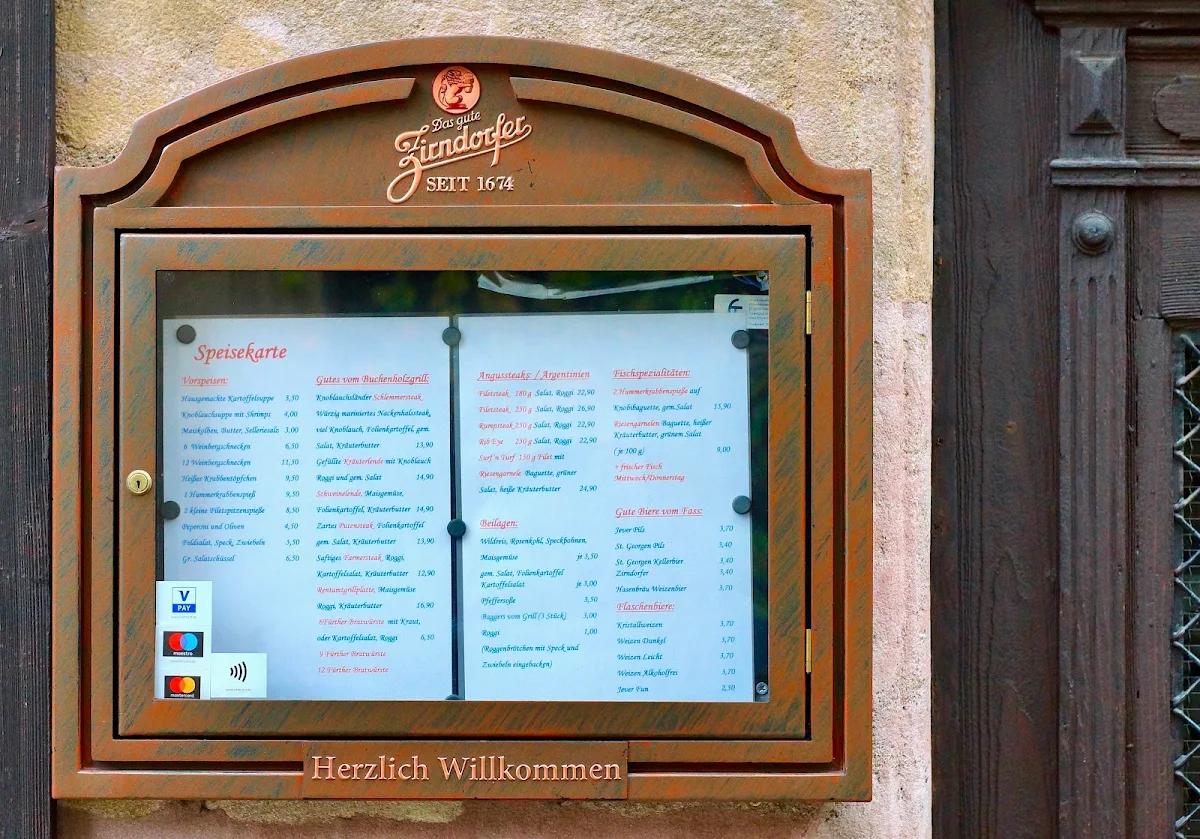 Das gute
Zirndorfer
SEIT 1674
Speisekarte
Vorspeisen:
Hausgemachte Kartoffelsuppe 3,50
Knoblauchsuppe mit Shrimps 4,00
Maiskolben, Butter, Selleriesalz 3,00
6 Weinbergschnecken 6,50
12 Weinbergschnecken 11,50
Heißes Krabbentöpfchen 9,50
1 Hummerkrabbenspieß 9,50
2 kleine Filetspitzenspieße 8,50
Peperoni und Oliven 4,50
Feldsalat, Speck, Zwiebeln 5,50
Gr. Salatschüssel 6,50
Gutes vom Buchenholzgrill:
Knoblauchsländer Schlemmersteak,
Würzig mariniertes Nackenhalssteak,
viel Knoblauch, Folienkartoffel, gem.
Salat, Kräuterbutter 13,90
Gefüllte Kräuterlende mit Knoblauch
Roggi und gem. Salat 14,90
Schweinelende, Maisgemüse,
Folienkartoffel, Kräuterbutter 14,90
Zartes Putensteak, Folienkartoffel
gem. Salat, Kräuterbutter 13,90
Saftiges Farmersteak, Roggi,
Kartoffelsalat, Kräuterbutter 12,90
Rentamtgrillplatte, Maisgemüse
Roggi, Kräuterbutter 16,90
6 Fürther Bratwürste mit Kraut,
oder Kartoffelsalat, Roggi 6,50
9 Fürther Bratwürste
12 Fürther Bratwürste
Angussteaks: / Argentinien
Filetsteak 180 g Salat, Roggi 22,90
Filetsteak 250 g Salat, Roggi 26,90
Rumpsteak 250 g Salat, Roggi 22,90
Rib Eye 250 g Salat, Roggi 22,90
Surf'n Turf 150 g Filet mit
Riesengarnele Baguette, grüner
Salat, heiße Kräuterbutter 24,90
Beilagen:
Wildreis, Rosenkohl, Speckbohnen,
Maisgemüse je 3,50
gem. Salat, Folienkartoffel
Kartoffelsalat je 3,00
Pfeffersoße 3,50
Baggers vom Grill (3 Stück) 3,00
Roggi 1,00
(Roggenbrötchen mit Speck und
Zwiebeln eingebacken)
Fischspezialitäten:
2 Hummerkrabbenspieße auf
Knobibaguette, gem.Salat 15,90
Riesengarnelen Baguette, heißer
Kräuterbutter, grünem Salat
( je 100 g) 9,00
+ frischer Fisch
Mittwoch/Donnerstag
Gute Biere vom Fass:
Jever Pils 3,70
St. Georgen Pils 3,40
St. Georgen Kellerbier 3,40
Zirndorfer 3,40
Hasenbräu Weizenbier 3,70
Flaschenbiere:
Kristallweizen 3,70
Weizen Dunkel 3,70
Weizen Leicht 3,70
Weizen Alkoholfrei 3,70
Jever Fun 2,50
V
PAY
maestro
mastercard
Herzlich Willkommen